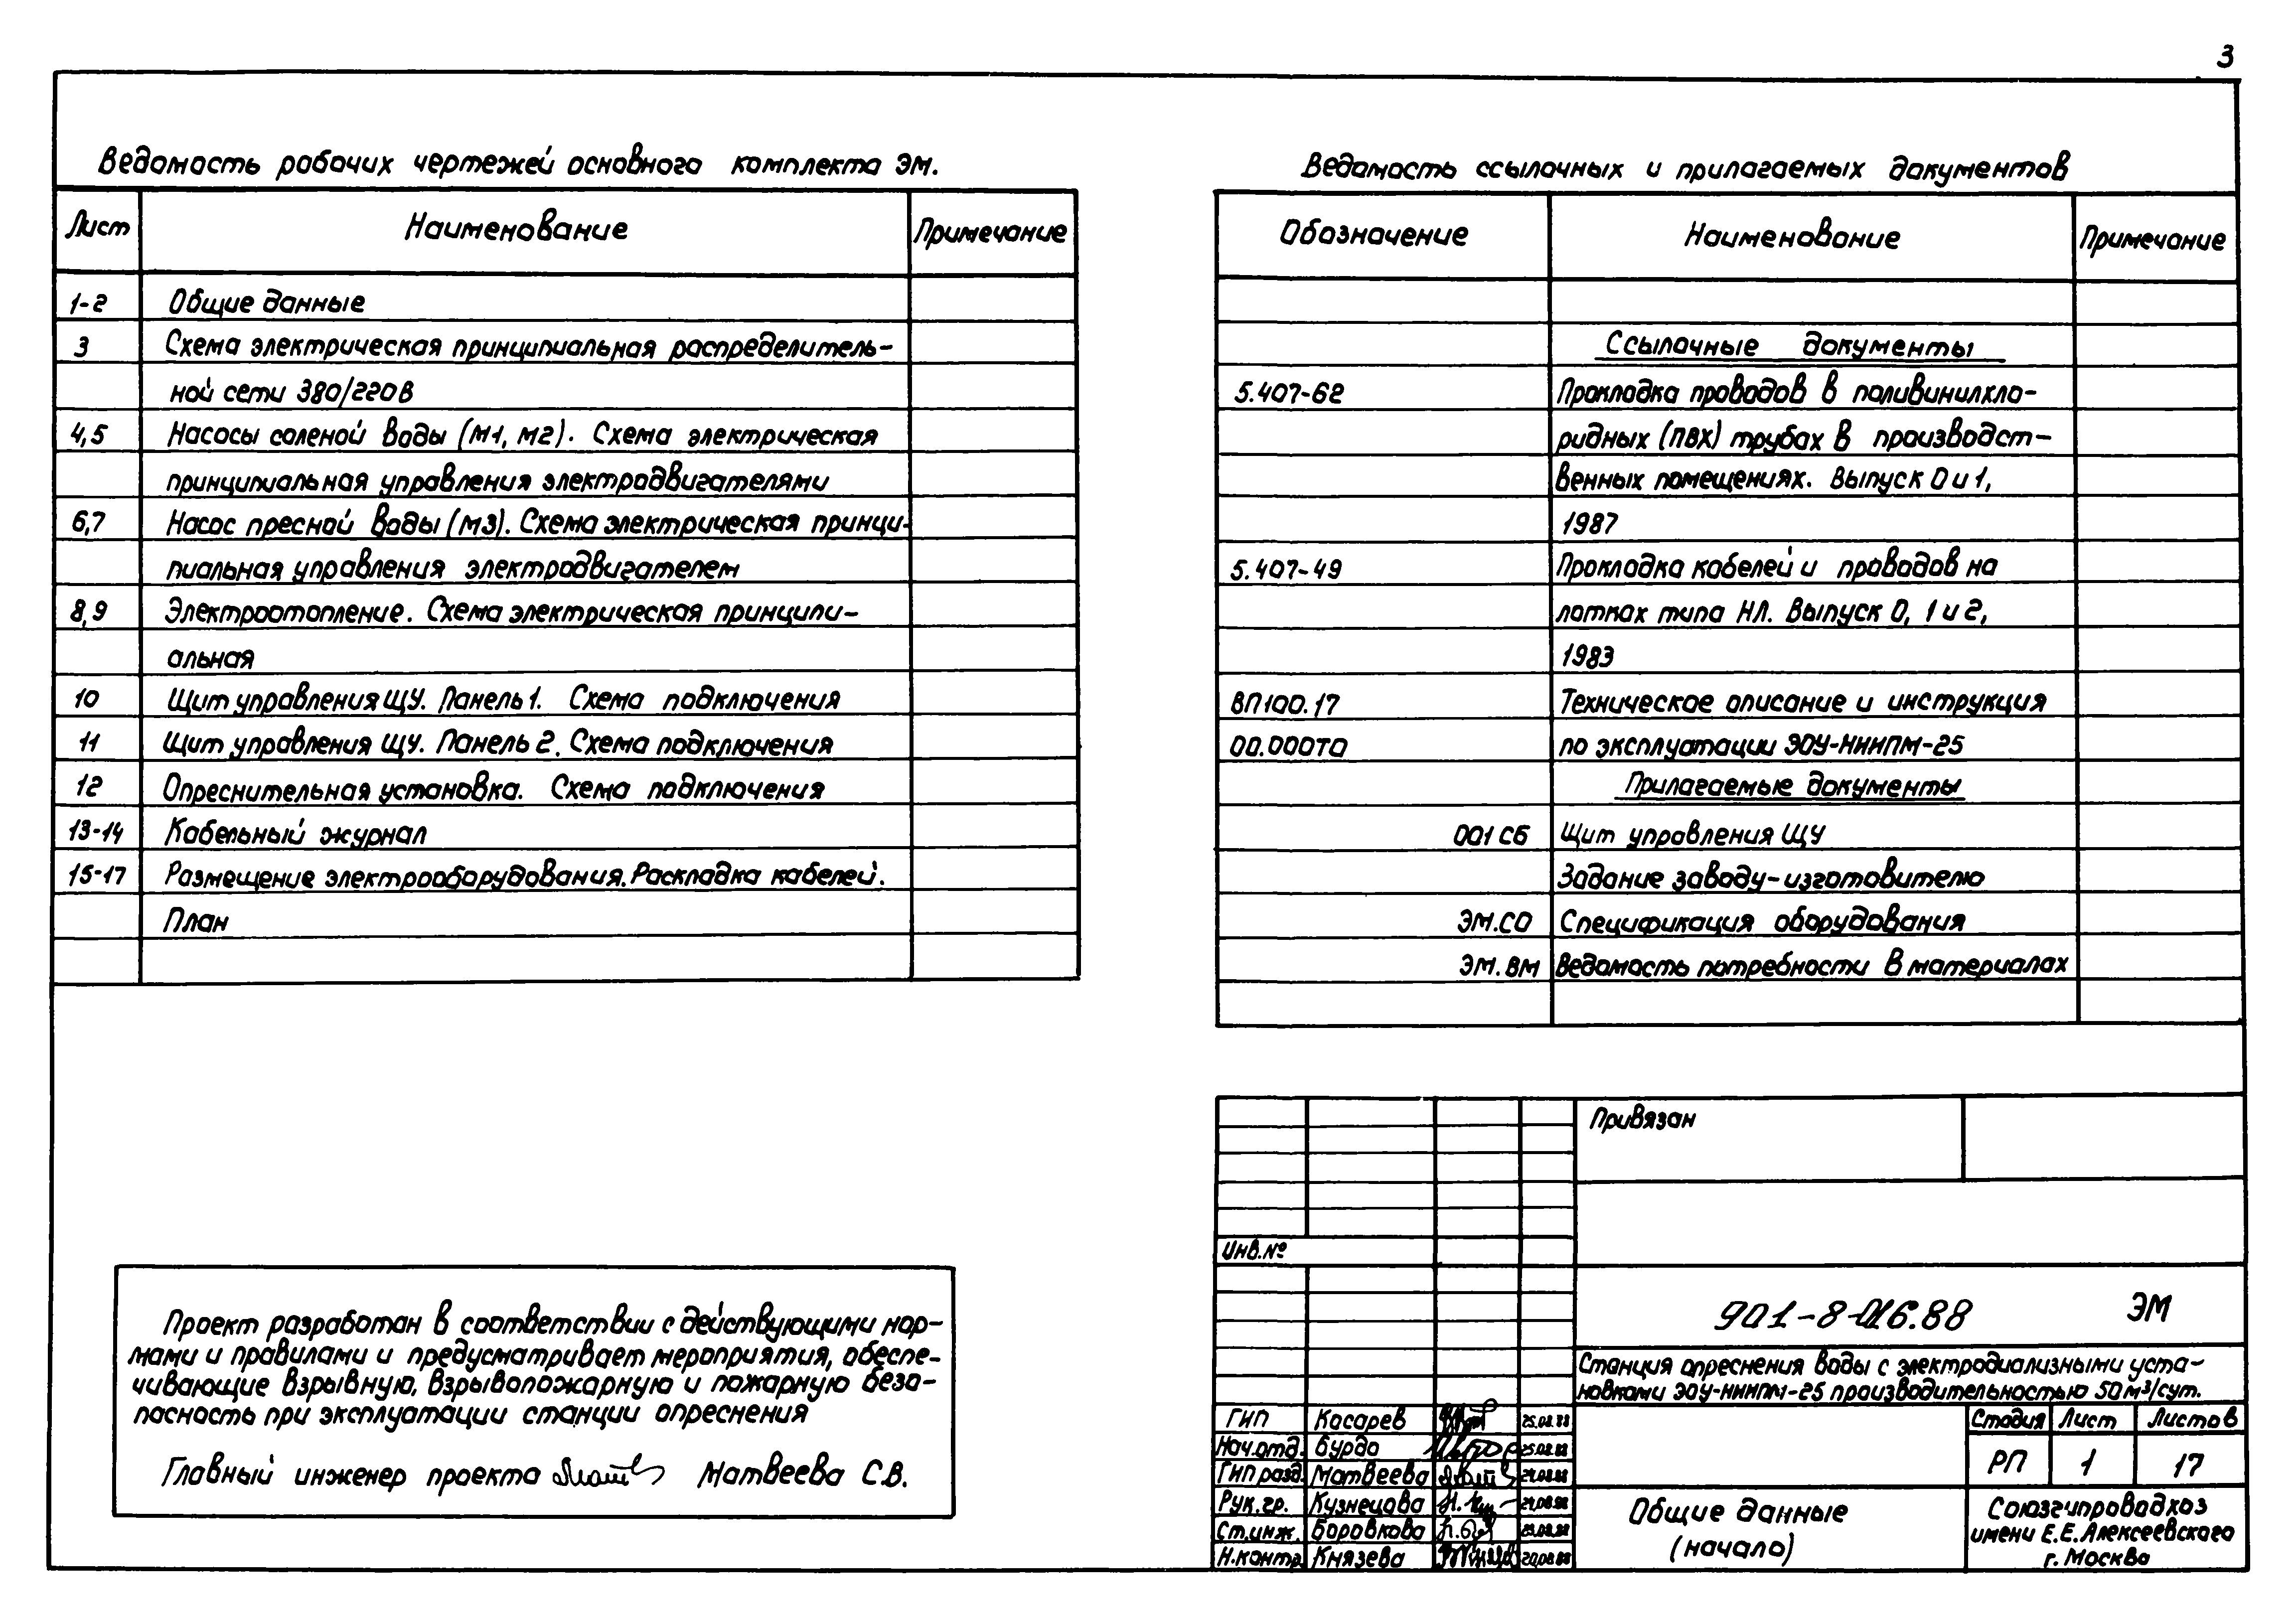 3
Ведомость рабочих чертежей основного комплекта ЭМ.
Лист Наименование Примечание
1-2 Общие данные
3 Схема электрическая принципиальная распределитель-
ной сети 380/220В
4,5 Насосы соленой воды (М1, М2). Схема электрическая
принципиальная управления электродвигателями
6,7 Насос пресной воды (М3). Схема электрическая принци-
пиальная управления электродвигателем
8,9 Электроотопление. Схема электрическая принципи-
альная
10 Щит управления ЩУ. Панель 1. Схема подключения
11 Щит управления ЩУ. Панель 2. Схема подключения
12 Опреснительная установка. Схема подключения
13-14 Кабельный журнал
15-17 Размещение электрооборудования. Раскладка кабелей.
План
Ведомость ссылочных и прилагаемых документов
Обозначение Наименование Примечание
Ссылочные документы
5.407-62 Прокладка проводов в поливинилхло-
ридных (ПВХ) трубах в производст-
венных помещениях. Выпуск 0 и 1,
1987
5.407-49 Прокладка кабелей и проводов на
лотках типа НЛ. Выпуск 0, 1 и 2,
1983
ВП100.17 Техническое описание и инструкция
00.000ТО по эксплуатации ЭОУ-НИИПМ-25
Прилагаемые документы
001 СБ Щит управления ЩУ
Задание заводу-изготовителю
ЭМ.СО Спецификация оборудования
ЭМ.ВМ Ведомость потребности в материалах
Проект разработан в соответствии с действующими нор-
мами и правилами и предусматривает мероприятия, обеспе-
чивающие взрывную, взрывопожарную и пожарную безо-
пасность при эксплуатации станции опреснения
Главный инженер проекта Матвеева С.В.
Привязан
Инв.№
901-8-016.88 ЭМ
Станция опреснения воды с электродиализными уста-
новками ЭОУ-НИИПМ-25 производительностью 50 м³/сут.
ГИП Косарев 25.08.88
Нач.отд. Бурдо 25.08.88
ГИП разд. Матвеева 24.08.88
Рук.гр. Кузнецова 24.08.88
Ст.инж. Боровкова 23.08.88
Н.контр. Князева 20.08.88
Стадия Лист Листов
РП 1 17
Общие данные
(начало)
Союзгипроводхоз
имени Е.Е.Алексеевского
г. Москва